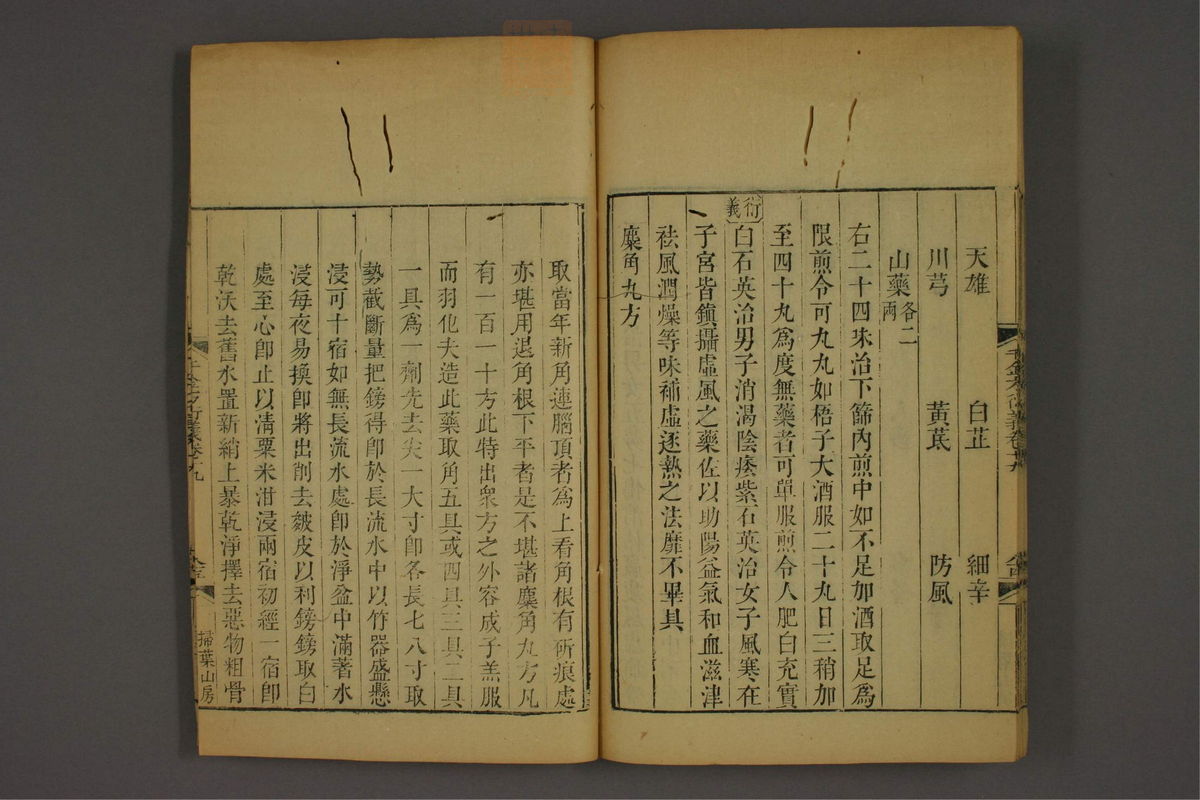 天雄 白芷 細辛
川芎 黃茋 防風
山藥各二兩
右二十四味治下篩內煎中如不足加酒取足爲
限煎令可丸丸如梧子大酒服二十丸日三稍加
至四十丸爲度無藥者可單服煎令人肥白充實
衍義 白石英治男子消渴陰痿紫石英治女子風寒在
子宮皆鎮攝虛風之藥佐以助陽益氣和血滋津
祛風潤燥等味補虛逐熱之法靡不畢具
麋角丸方
取當年新角連腦頂者爲上看角根有斫痕處
亦堪用退角根下平者是不堪諸麋角丸方凡
有一百一十方此特出衆方之外容成子羔服
而羽化夫造此藥取角五具或四具三具二具
一具爲一劑先去尖一大寸卽各長七八寸取
勢截斷量把鎊得卽於長流水中以竹器盛懸
浸可十宿如無長流水處卽於淨盆中滿著水
浸每夜易換卽將出削去皴皮以利鎊鎊取白
處至心卽止以清粟米泔浸兩宿初經一宿卽
乾沃去舊水置新絹上暴乾淨擇去惡物粗骨
千金方衍義卷十九
掃葉山房